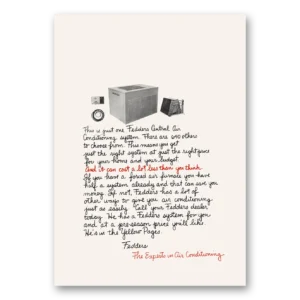 This is just one Fedders Central Air
Conditioning system. There are 640 others
to choose from. This means you get
just the right system at just the right price
for your home and your budget.
And it can cost a lot less than you think.
If you have a forced air furnace you have
half a system already and that can save you
money. If not, Fedders has a lot of
other ways to give you air conditioning
just as easily. Call your Fedders dealer
today. He has a Fedders system for you
and at a pre-season price you'll like.
He's in the Yellow Pages.
Fedders
The Experts in Air Conditioning